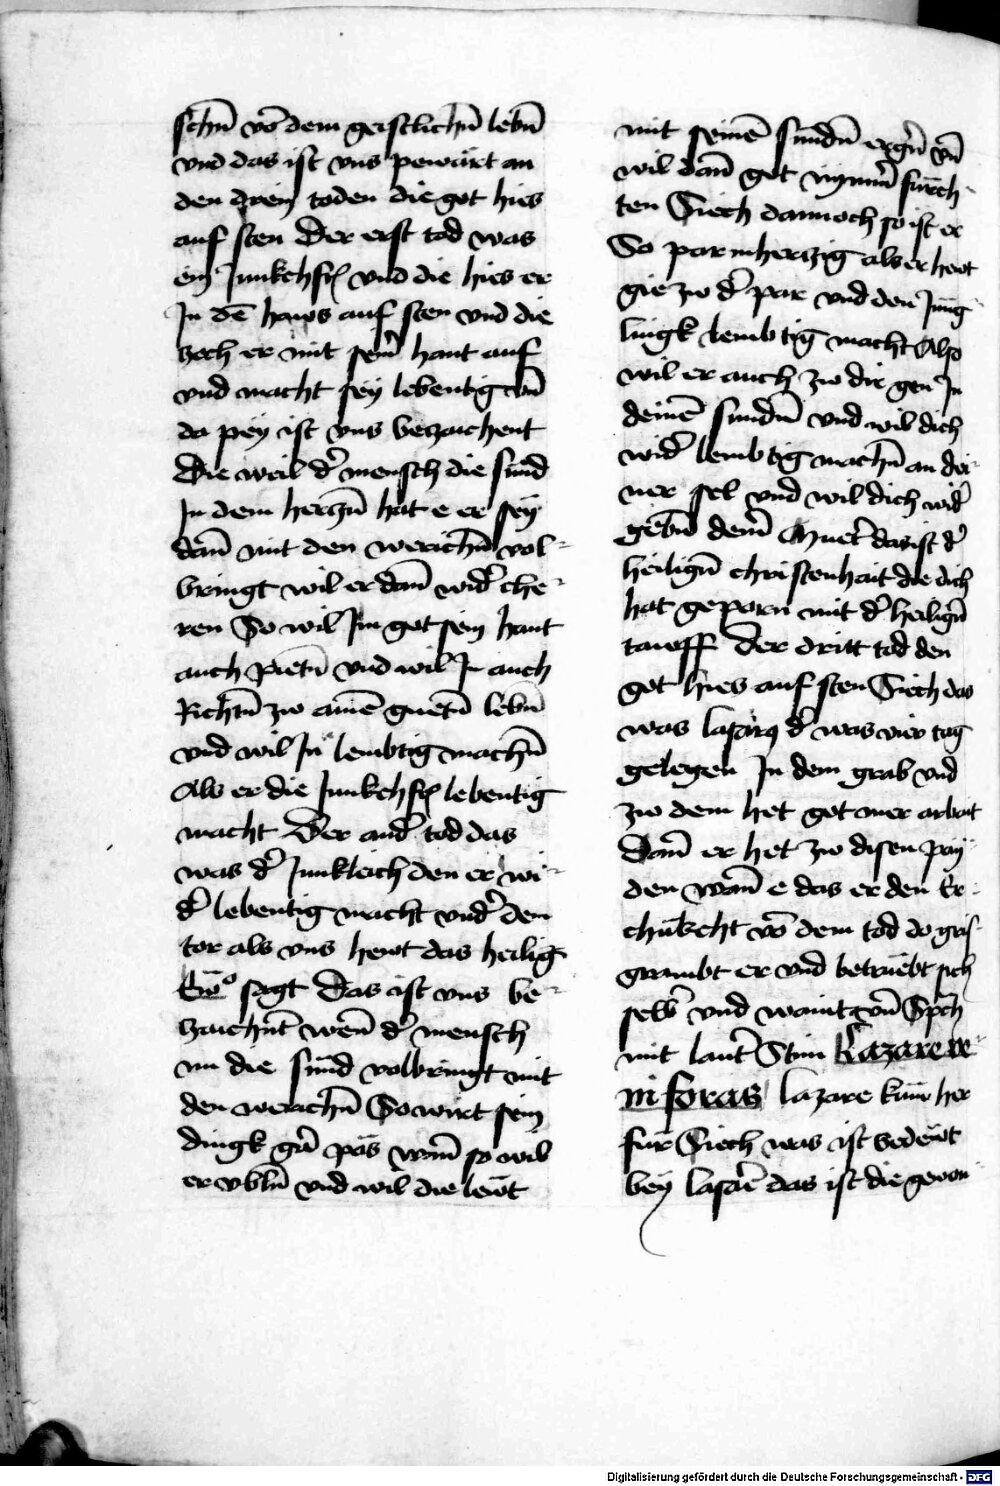 schn̄ vō dem geistlichn̄ lebn̄
vnd das ist vns pewärt an
den drein toden die got hies
auf sten Der erst tod was
ein Junkchfr vnd die hies er
In dē haws auf sten vnd die
zoch er mit sein̄ hant auf
vnd macht sey lebentig vn̄
da pey ist vns bezaichent
Die weil d̄ mensch die sünd
In dem herczn̄ hat e er sey
dan̄ mit den werichn̄ vol-
bringt wil er dan̄ wid̄ che-
ren So wil Im got sein hant
auch pietn̄ vnd wil In auch
Richtn̄ zw ainē guetn̄ lebn̄
vnd wil In lembtig machn̄
Als er die Junkchfr lebentig
macht Der and̄ tod das
was d̄ Junkleich den er wi-
d̄ lebentig macht vnd̄ dem
tor als vns hewt das heilig
Ew̄o sagt Das ist vns be-
zaichnt̄ wen̄ d̄ mensch
nu die sünd volbringt mit
den werichn̄ So wirt sein
dingk gn̄ pös wan̄ so wil
er vbln̄ vnd wil die lewt
mit seinē sundn̄ ergn̄ vn̄
wil dan̄ got nymm̄ fürch-
ten Siech dannoch so ist er
So parmherczig als er hewt
gie zw d̄ par vnd den Jüng-
lingk lembtig macht Also
wil er auch zw dir gen In
deinē sundn̄ vnd wil dich
wid̄ lembtig machn̄ an dei-
ner sel vnd wil dich wid̄
gebn̄ dein̄ Muet̄ das ist d̄
heilign̄ christenhait die dich
hat geporn mit d̄ heilign̄
tawff Der dritt tod den
got hies auf sten Siech das
was lasarus d̄ was vier tag
gelegen In dem grab vnd
zw dem het got mer arbait
Dan̄ er het zw disen pay-
den wan̄ e das er den Er-
chükcht vō dem tod do gris-
grambt er vnd betruebt sich
selb̄ vnd waint vn̄ Sp̄ch
mit laut̄ Stim Lazare ve-
ni foras lazare küm her
für Siech was ist bedewt
bey lasarē das ist die gewon
Digitalisierung gefördert durch die Deutsche Forschungsgemeinschaft - DFG